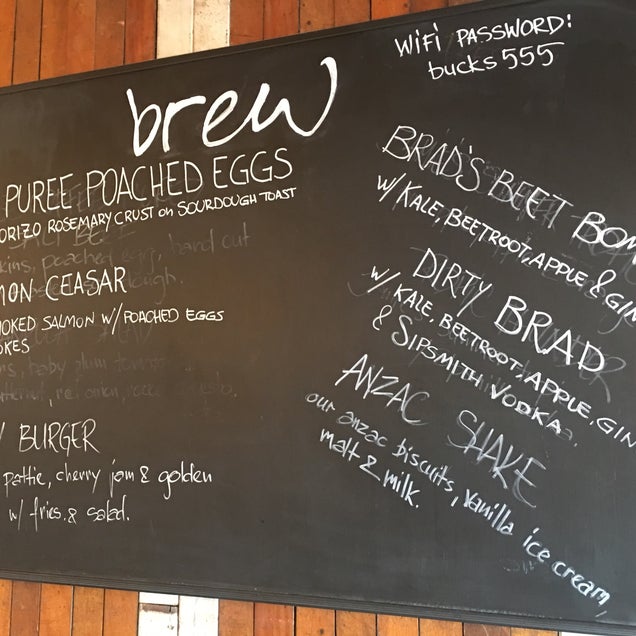 WiFi PASSWORD:
bucks 555
brew
PUREE POACHED EGGS
ORIZO ROSEMARY CRUST on SOURDOUGH TOAST
MON CEASAR
MOKED SALMON W/ POACHED EGGS
OKES
BURGER
pattie, cherry jam & golden
w/ fries & salad.
BRAD'S BEET BOM
w/ KALE, BEETROOT, APPLE & GIN
DIRTY BRAD
w/ KALE, BEETROOT, APPLE, GIN
& SIPSMITH VODKA.
ANZAC SHAKE
our anzac biscuits, vanilla ice cream,
malt & milk.